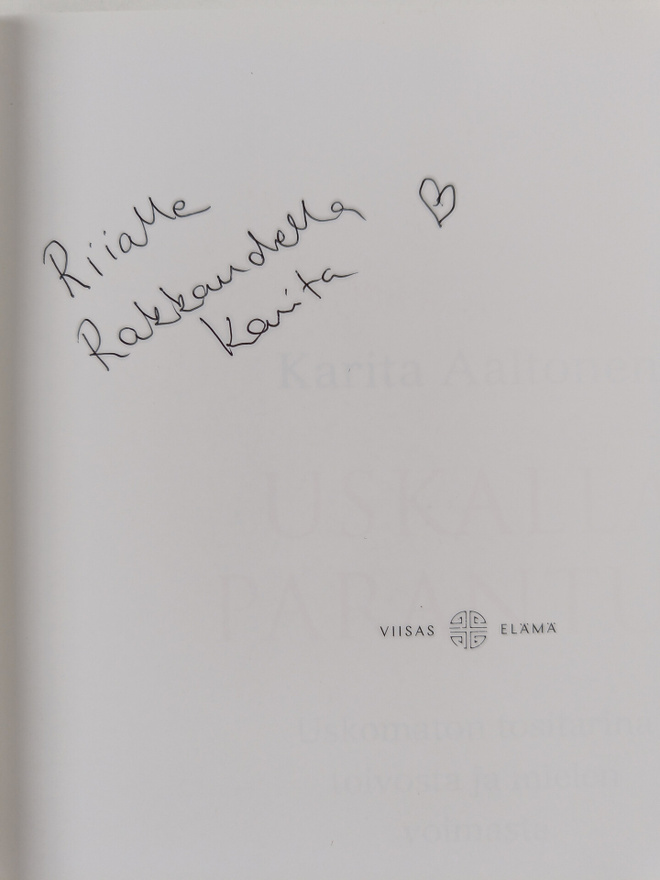 Riialle
Rakkaudella
Karita
Karita Aaltonen
USKALLA
PARANTU
VIISAS ELÄMÄ
Uskomaton tositarina
toivosta ja mielen
voimasta